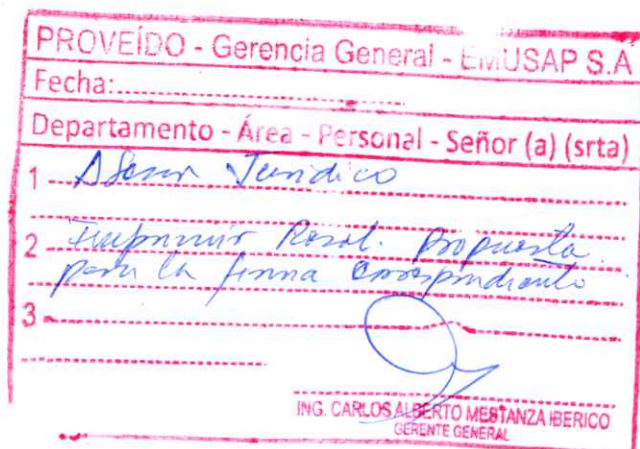 PROVEÍDO - Gerencia General - EMUSAP S.A
Fecha:
Departamento - Área - Personal - Señor (a) (srta)
1 Asesor Juridico
2 Imprimir Resol. propuesta
para la firma correspondiente
3
ING. CARLOS ALBERTO MESTANZA IBERICO
GERENTE GENERAL